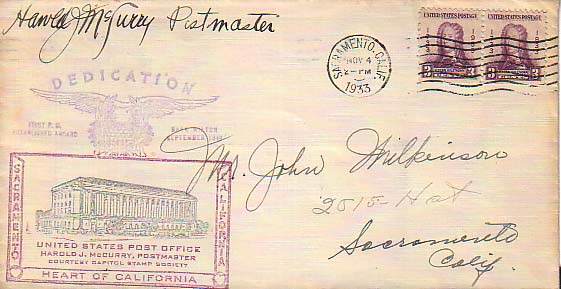 Harold J McCurry Postmaster
UNITED STATES POSTAGE UNITED STATES POSTAGE
3 3
SACRAMENTO, CALIF.
NOV 4
2-PM
1933
DEDICATION
FIRST P. O.
ESTABLISHED ABOARD
SEPTEMBER
Mr. John Wilkinson
2015-H st
Sacramento
Calif.
SACRAMENTO
CALIFORNIA
UNITED STATES POST OFFICE
HAROLD J. McCURRY, POSTMASTER
COURTESY CAPITOL STAMP SOCIETY
HEART OF CALIFORNIA